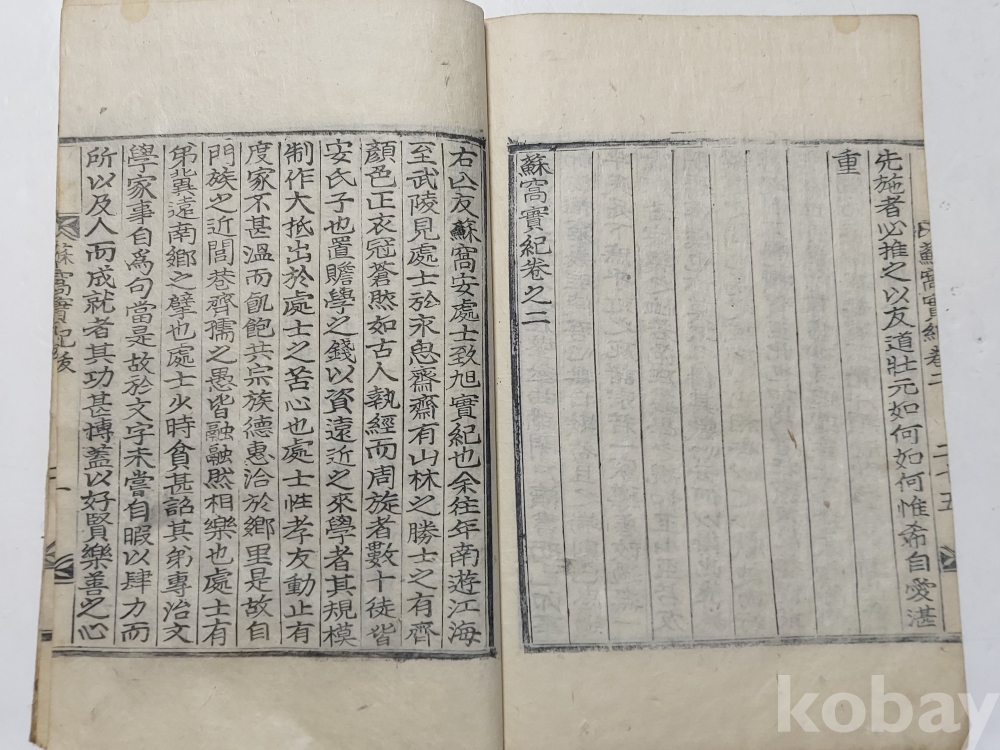 先施者必推之以友道壯元如何如何惟希自愛湛
重
蘇窩實紀卷之二
蘇窩實紀卷二
二十五
右亾友蘇窩安處士致旭實紀也余往年南遊江海
至武陵見處士於永思齋齋有山林之勝士之有齊
顔色正衣冠蒼然如古人執經而周旋者數十徒皆
安氏子也置贍學之錢以資遠近之來學者其規模
制作大抵出於處士之苦心也處士性孝友動止有
度家不甚溫而飢飽共宗族德惠洽於鄕里是故自
門族之近閭巷齊孺之愚皆融融然相樂也處士有
弟冀遠南鄕之擘也處士少時貧甚詔其弟專治文
學家事自爲句當是故於文字未嘗自暇以肆力而
所以及人而成就者其功甚博蓋以好賢樂善之心
蘇窩實紀後
一
kobay